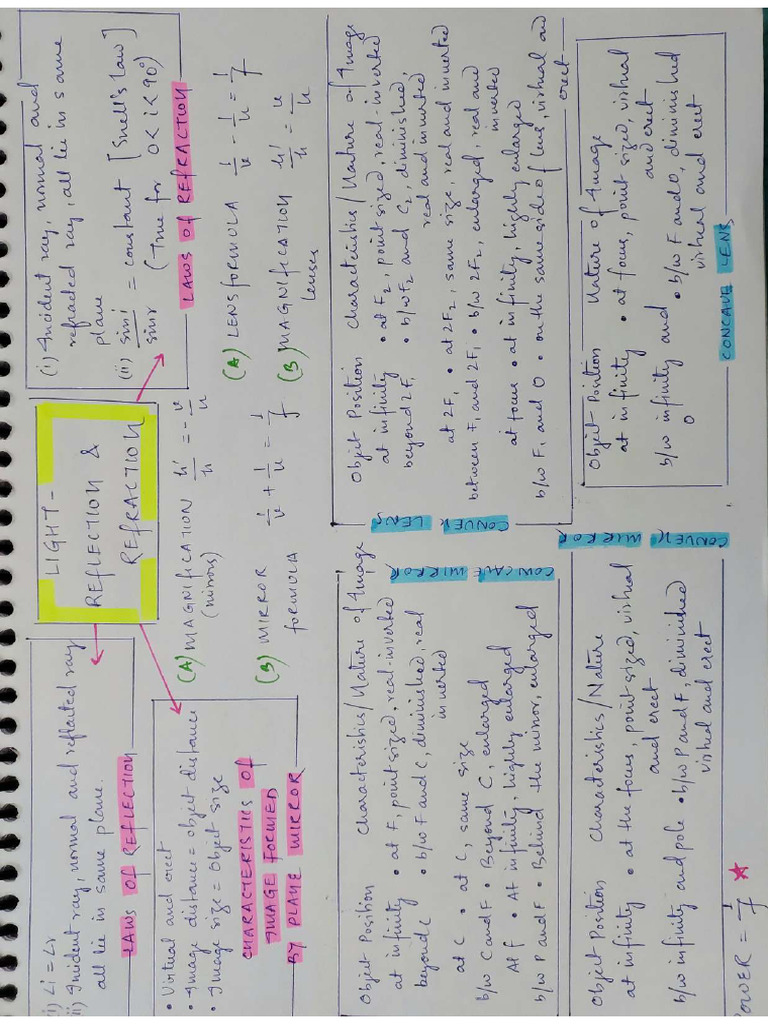 LIGHT-
REFLECTION &
REFRACTION
(i) ∠i = ∠r
(ii) Incident ray, normal and reflected ray
all lie in same plane.
LAWS OF REFLECTION
• Virtual and erect
• Image distance = Object distance
• Image size = Object size
CHARACTERISTICS OF
IMAGE FORMED
BY PLANE MIRROR
(i) Incident ray, normal and
refracted ray, all lie in same
plane
(ii) sin i / sin r = constant [Snell's Law]
(True for 0<i<90°)
LAWS OF REFRACTION
(A) MAGNIFICATION h'/h = -v/u
(mirrors)
(B) MIRROR 1/v + 1/u = 1/f
FORMULA
(A) LENS FORMULA 1/v - 1/u = 1/f
(B) MAGNIFICATION h'/h = v/u
lenses
Object Position Characteristics/Nature of Image
at infinity • at F, point sized, real-inverted
beyond C • b/w F and C, diminished, real
inverted
at C • at C, same size
b/w C and F • Beyond C, enlarged
At F • At infinity, highly enlarged
b/w P and F • Behind the mirror, enlarged
CONCAVE
MIRROR
Object Position Characteristics/Nature of Image
at infinity • at F2, point sized, real-inverted
beyond 2F1 • b/w F2 and C2, diminished,
real and inverted
at 2F1 • at 2F2, same size, real and inverted
between F1 and 2F1 • b/w 2F2, enlarged, real and
inverted
at focus • at infinity, highly enlarged
b/w F1 and O • on the same side of lens, virtual and
erect
CONVEX
LENS
Object Position Characteristics/Nature
at infinity • at the focus, point sized, virtual
and erect
b/w infinity and pole • b/w P and F, diminished
virtual and erect
CONVEX
MIRROR
Object Position Nature of Image
at infinity • at focus, point sized, virtual
and erect
b/w infinity and • b/w F and O, diminished
O virtual and erect
CONCAVE LENS
POWER = 1/f